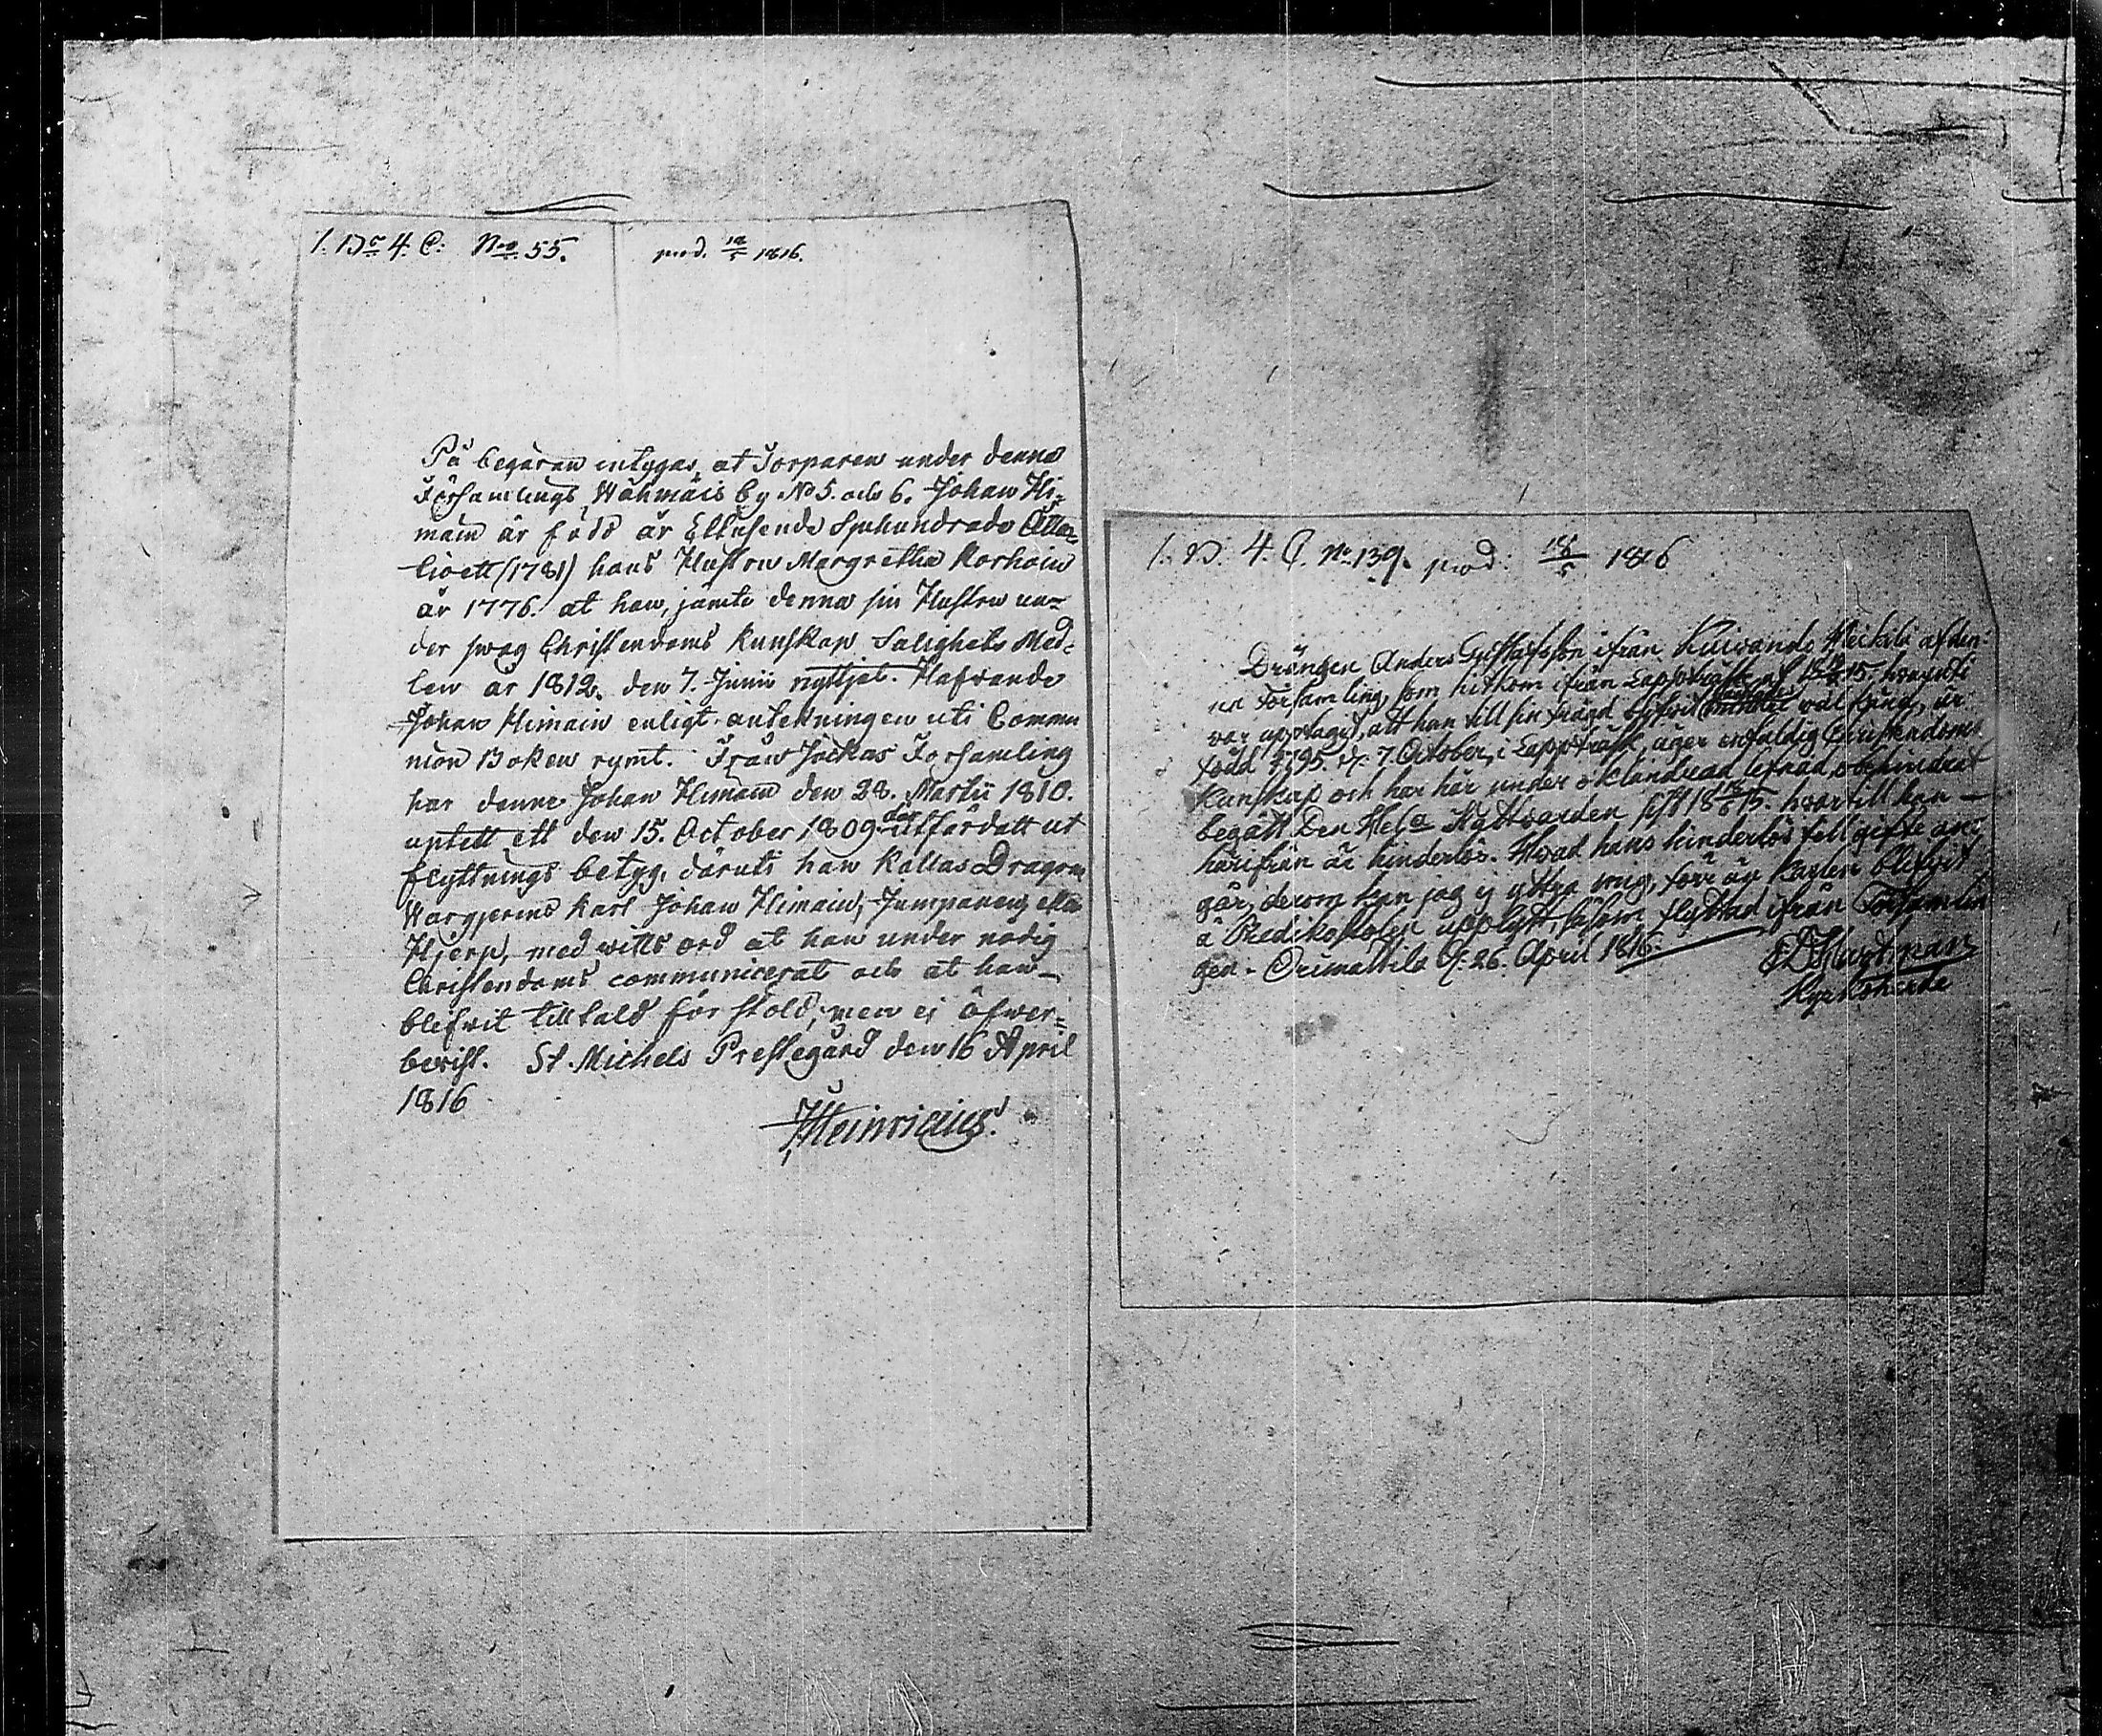 1. Dr 4. C: No 55.
prod. 18/5 1816.
På begäran intygas, at Torparen under denna
Församlings, Wåhmäis by No 5. och 6. Johan Hi-
main är född år Ettusende Sjuhundrade Åtta-
tioett (1781) hans Hustru Margretha Korhoin
år 1776. at han, jämte denna sin Hustru un-
der swag Christendoms Kunskap Salighets Med-
len år 1812. den 7. Junii nyttjat. Hafvande
Johan Himain enligt antekningen uti Commu
nion Boken rymt. Från Jockas Församling
har denne Johan Himain den 28. Martii 1810.
uptett ett den 15. October 1809 der utfärdatt ut
flyttnings betyg, däruti han kallas Dragon
Wargerings Karl Johan Himain, Jumpanen eller
Hjerp, med witts ord at han under nödig
Christendoms communicerat och at han
blifvit tilltald för stöld, men ej öfwer-
bevist. St. Michels Prestegård den 16 April
1816
Heinricius.
1. D. 4. C. No 139. prod: 18/5 1816
Drängen Anders Gustafsson ifrån Kuivando Heickilä af den-
na Församling, som hitkom ifrån Lappträsk
var upptagit, att han till sin frägd var känd, är
född 1795. d. 7. October, i Lappträsk, äger enfaldig Christendoms
Kunskap och har här under oklandrad lefnad, obehindrat
begått Den Hela Nattvarden sist 1815. hvartill han
härifrån är hinderlös. Hvad hans hinderlöshet till gifte an-
går, derom kan jag ej yttra mig, förr än Karlen blifvit
å Predikostolen upplyst, såsom flyttad ifrån Församlin
gen. Orimattila d. 26. April 1816.
Hartman
Kyrkoherde